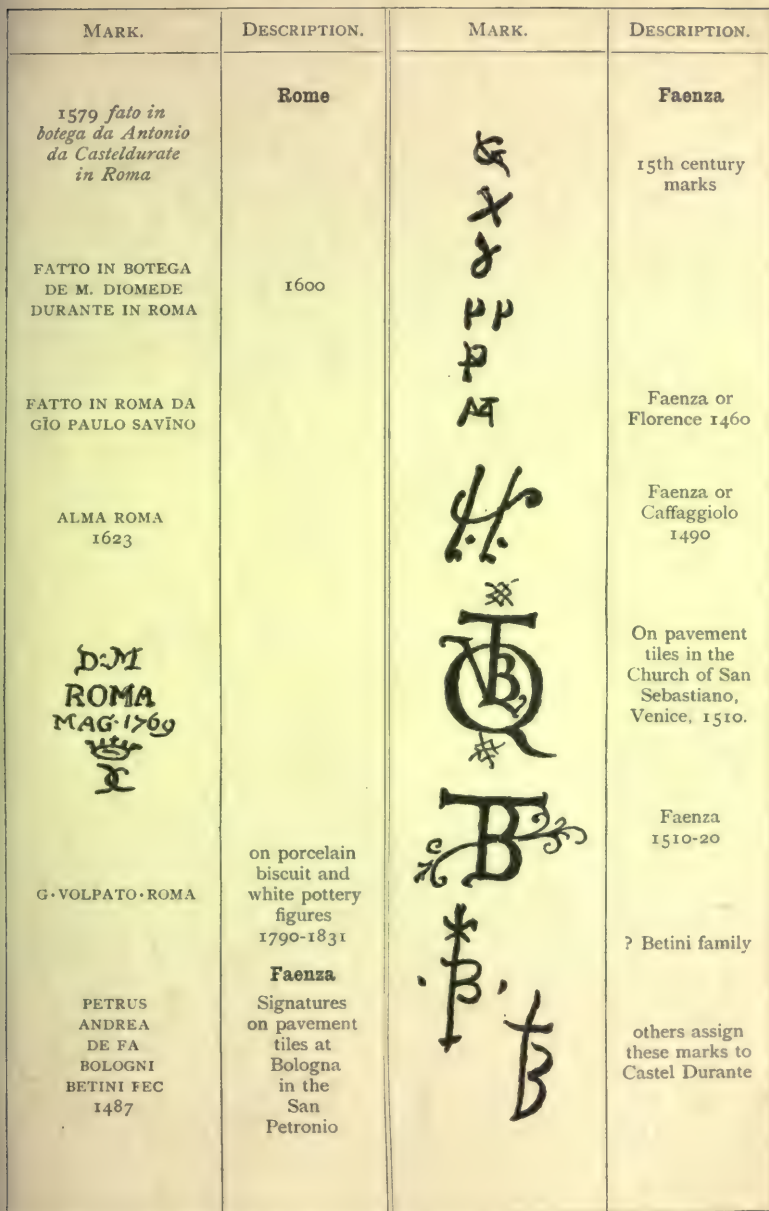 MARK.
DESCRIPTION.
MARK.
DESCRIPTION.
Rome
1579 fato in
botega da Antonio
da Casteldurate
in Roma
FATTO IN BOTEGA
DE M. DIOMEDE
DURANTE IN ROMA
1600
FATTO IN ROMA DA
GĪO PAULO SAVĪNO
ALMA ROMA
1623
D:M
ROMA
MAG·1769
G·VOLPATO·ROMA
on porcelain
biscuit and
white pottery
figures
1790-1831
Faenza
PETRUS
ANDREA
DE FA
BOLOGNI
BETINI FEC
1487
Signatures
on pavement
tiles at
Bologna
in the
San
Petronio
Faenza
15th century
marks
Faenza or
Florence 1460
Faenza or
Caffaggiolo
1490
On pavement
tiles in the
Church of San
Sebastiano,
Venice, 1510.
TB
Faenza
1510-20
B
? Betini family
B
others assign
these marks to
Castel Durante